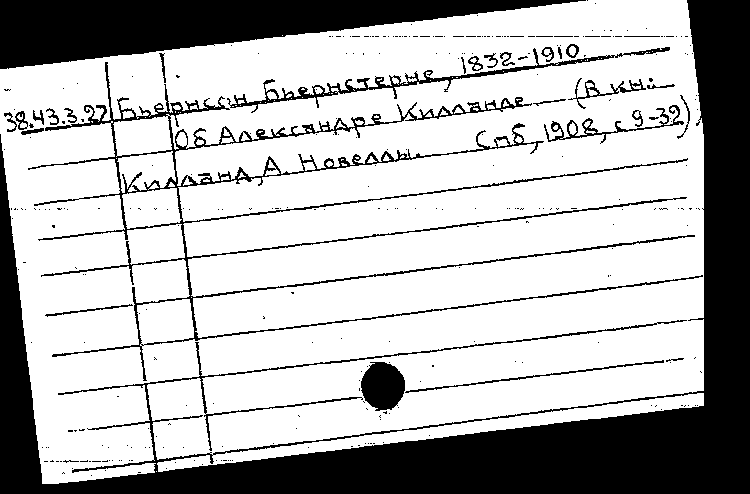 38.43.3.27 Бьернсон, Бьернстерне, 1832-1910
Об Александре Килланде (В кн.:
Килланд, А. Новеллы. Спб, 1908, с 9-32)